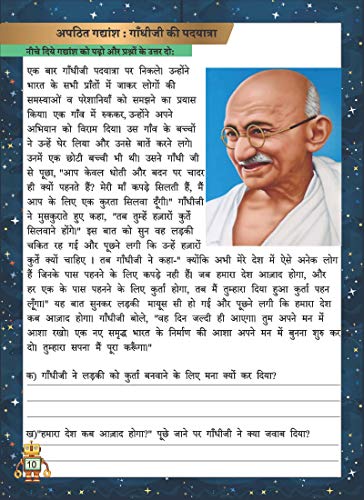 अपठित गद्यांश : गाँधीजी की पदयात्रा
नीचे दिये गद्यांश को पढ़ो और प्रश्नों के उत्तर दो:
एक बार गाँधीजी पदयात्रा पर निकले। उन्होंने
भारत के सभी प्राँतों में जाकर लोगों की
समस्याओं व परेशानियों को समझने का प्रयास
किया। एक गाँव में रुककर,उन्होंने अपने
अभियान को विराम दिया। उस गाँव के बच्चों
ने उन्हें घेर लिया और उनसे बातें करने लगे।
उनमें एक छोटी बच्ची भी थी। उसने गाँधी जी
से पूछा, "आप केवल धोती और बदन पर चादर
ही क्यों पहनते हैं? मेरी माँ कपड़े सिलती हैं, मैं
आप के लिए एक कुरता सिलवा दूँगी।" गाँधीजी
ने मुसकुराते हुए कहा, "तब तुम्हें हज़ारों कुर्ते
सिलवाने होंगे।" इस बात को सुन वह लड़की
चकित रह गई और पूछने लगी कि उन्हें हज़ारों
कुर्ते क्यों चाहिए । तब गाँधीजी ने कहा-" क्योंकि अभी मेरे देश में ऐसे अनेक लोग
हैं जिनके पास पहनने के लिए कपड़े नही हैं। जब हमारा देश आज़ाद होगा, और
हर एक के पास पहनने के लिए कुर्ता होगा, तब मैं तुम्हारा दिया हुआ कुर्ता पहन
लूँगा।" यह बात सुनकर लड़की मायूस सी हो गई और पूछने लगी कि हमारा देश
कब आज़ाद होगा। गाँधीजी बोले, "वह दिन जल्दी ही आएगा। तुम अपने मन में
आशा रखो। एक नए समृद्ध भारत के निर्माण की आशा अपने मन में बुनना शुरु कर
दो। तुम्हारा सपना मैं पूरा करूँगा।"
क) गाँधीजी ने लड़की को कुर्ता बनवाने के लिए मना क्यों कर दिया?
ख)"हमारा देश कब आज़ाद होगा?" पूछे जाने पर गाँधीजी ने क्या जवाब दिया?
10